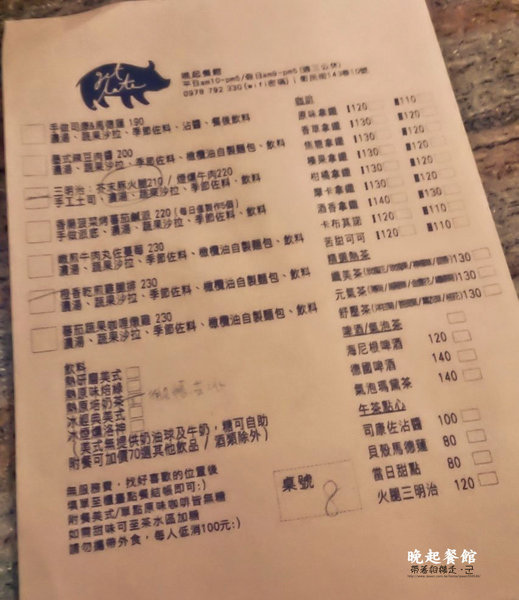 get up Late
晚起餐館
平日am10-pm5/假日am9-pm5(週三公休)
0978 792 330(wifi密碼)|衛民街143巷10號
手做司康&馬德蓮 190
濃湯、蔬果沙拉、季節佐料、沾醬、餐後飲料
墨式辣豆肉醬 200
濃湯、蔬果沙拉、季節佐料、橄欖油自製麵包、飲料
三明治：芥末豚火腿210 / 煙燻牛肉220
手工土司、濃湯、蔬果沙拉、季節佐料、飲料
香腸菠菜烤蕃茄鹹派 220(每日僅製作5個)
手做派底、濃湯、蔬果沙拉、季節佐料、飲料
嫩煎牛肉丸佐蕃莓 230
濃湯、蔬果沙拉、季節佐料、橄欖油自製麵包、飲料
橙香乾煎雞腿排 230
濃湯、蔬果沙拉、季節佐料、橄欖油自製麵包、飲料
蕃茄蔬果咖哩燉雞 230
濃湯、蔬果沙拉、季節佐料、橄欖油自製麵包、飲料
飲料
熱研磨美式
熱原味焙綠
熱原焙奶茶
冰經典美式
冰煙燻洛神
(美式無提供奶油球及牛奶，糖可自助
附餐可加價70選其他飲品 / 酒類除外)
無服務費，找好喜歡的位置後
填單至櫃臺點餐結帳即可:)
附餐美式/單點原味咖啡皆無糖
如需甜味可至茶水區加糖
請勿攜帶外食，每人低消100元:)
桌號
8
咖啡
原味拿鐵 120 110
香草拿鐵 130 110
焦糖拿鐵 130 110
榛果拿鐵 130 110
柑橘拿鐵 130 110
摩卡拿鐵 130 110
酒香拿鐵 130 110
卡布其諾 120 110
苦甜可可 120 110
精選熱茶
纖美茶 130
元氣茶 130
舒壓茶 130
啤酒/氣泡茶
海尼根啤酒 120
德國啤酒 140
氣泡瑪黛茶 140
午茶點心
司康佐沾醬 100
貝殼馬德蓮 80
當日甜點 80
火腿三明治 120
晚起餐館